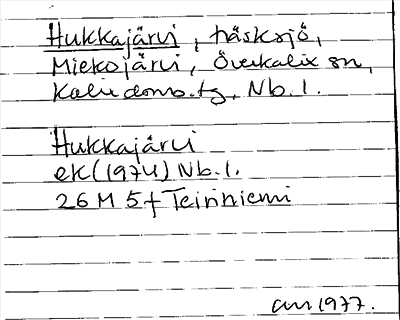 Hukkajärvi, träsksjö,
Miekojärvi, Överkalix sn,
Kalix doms.tg, Nb. l.
Hukkajärvi
ek (1974) Nb. l.
26 M 5f Teinniemi
am 1977.